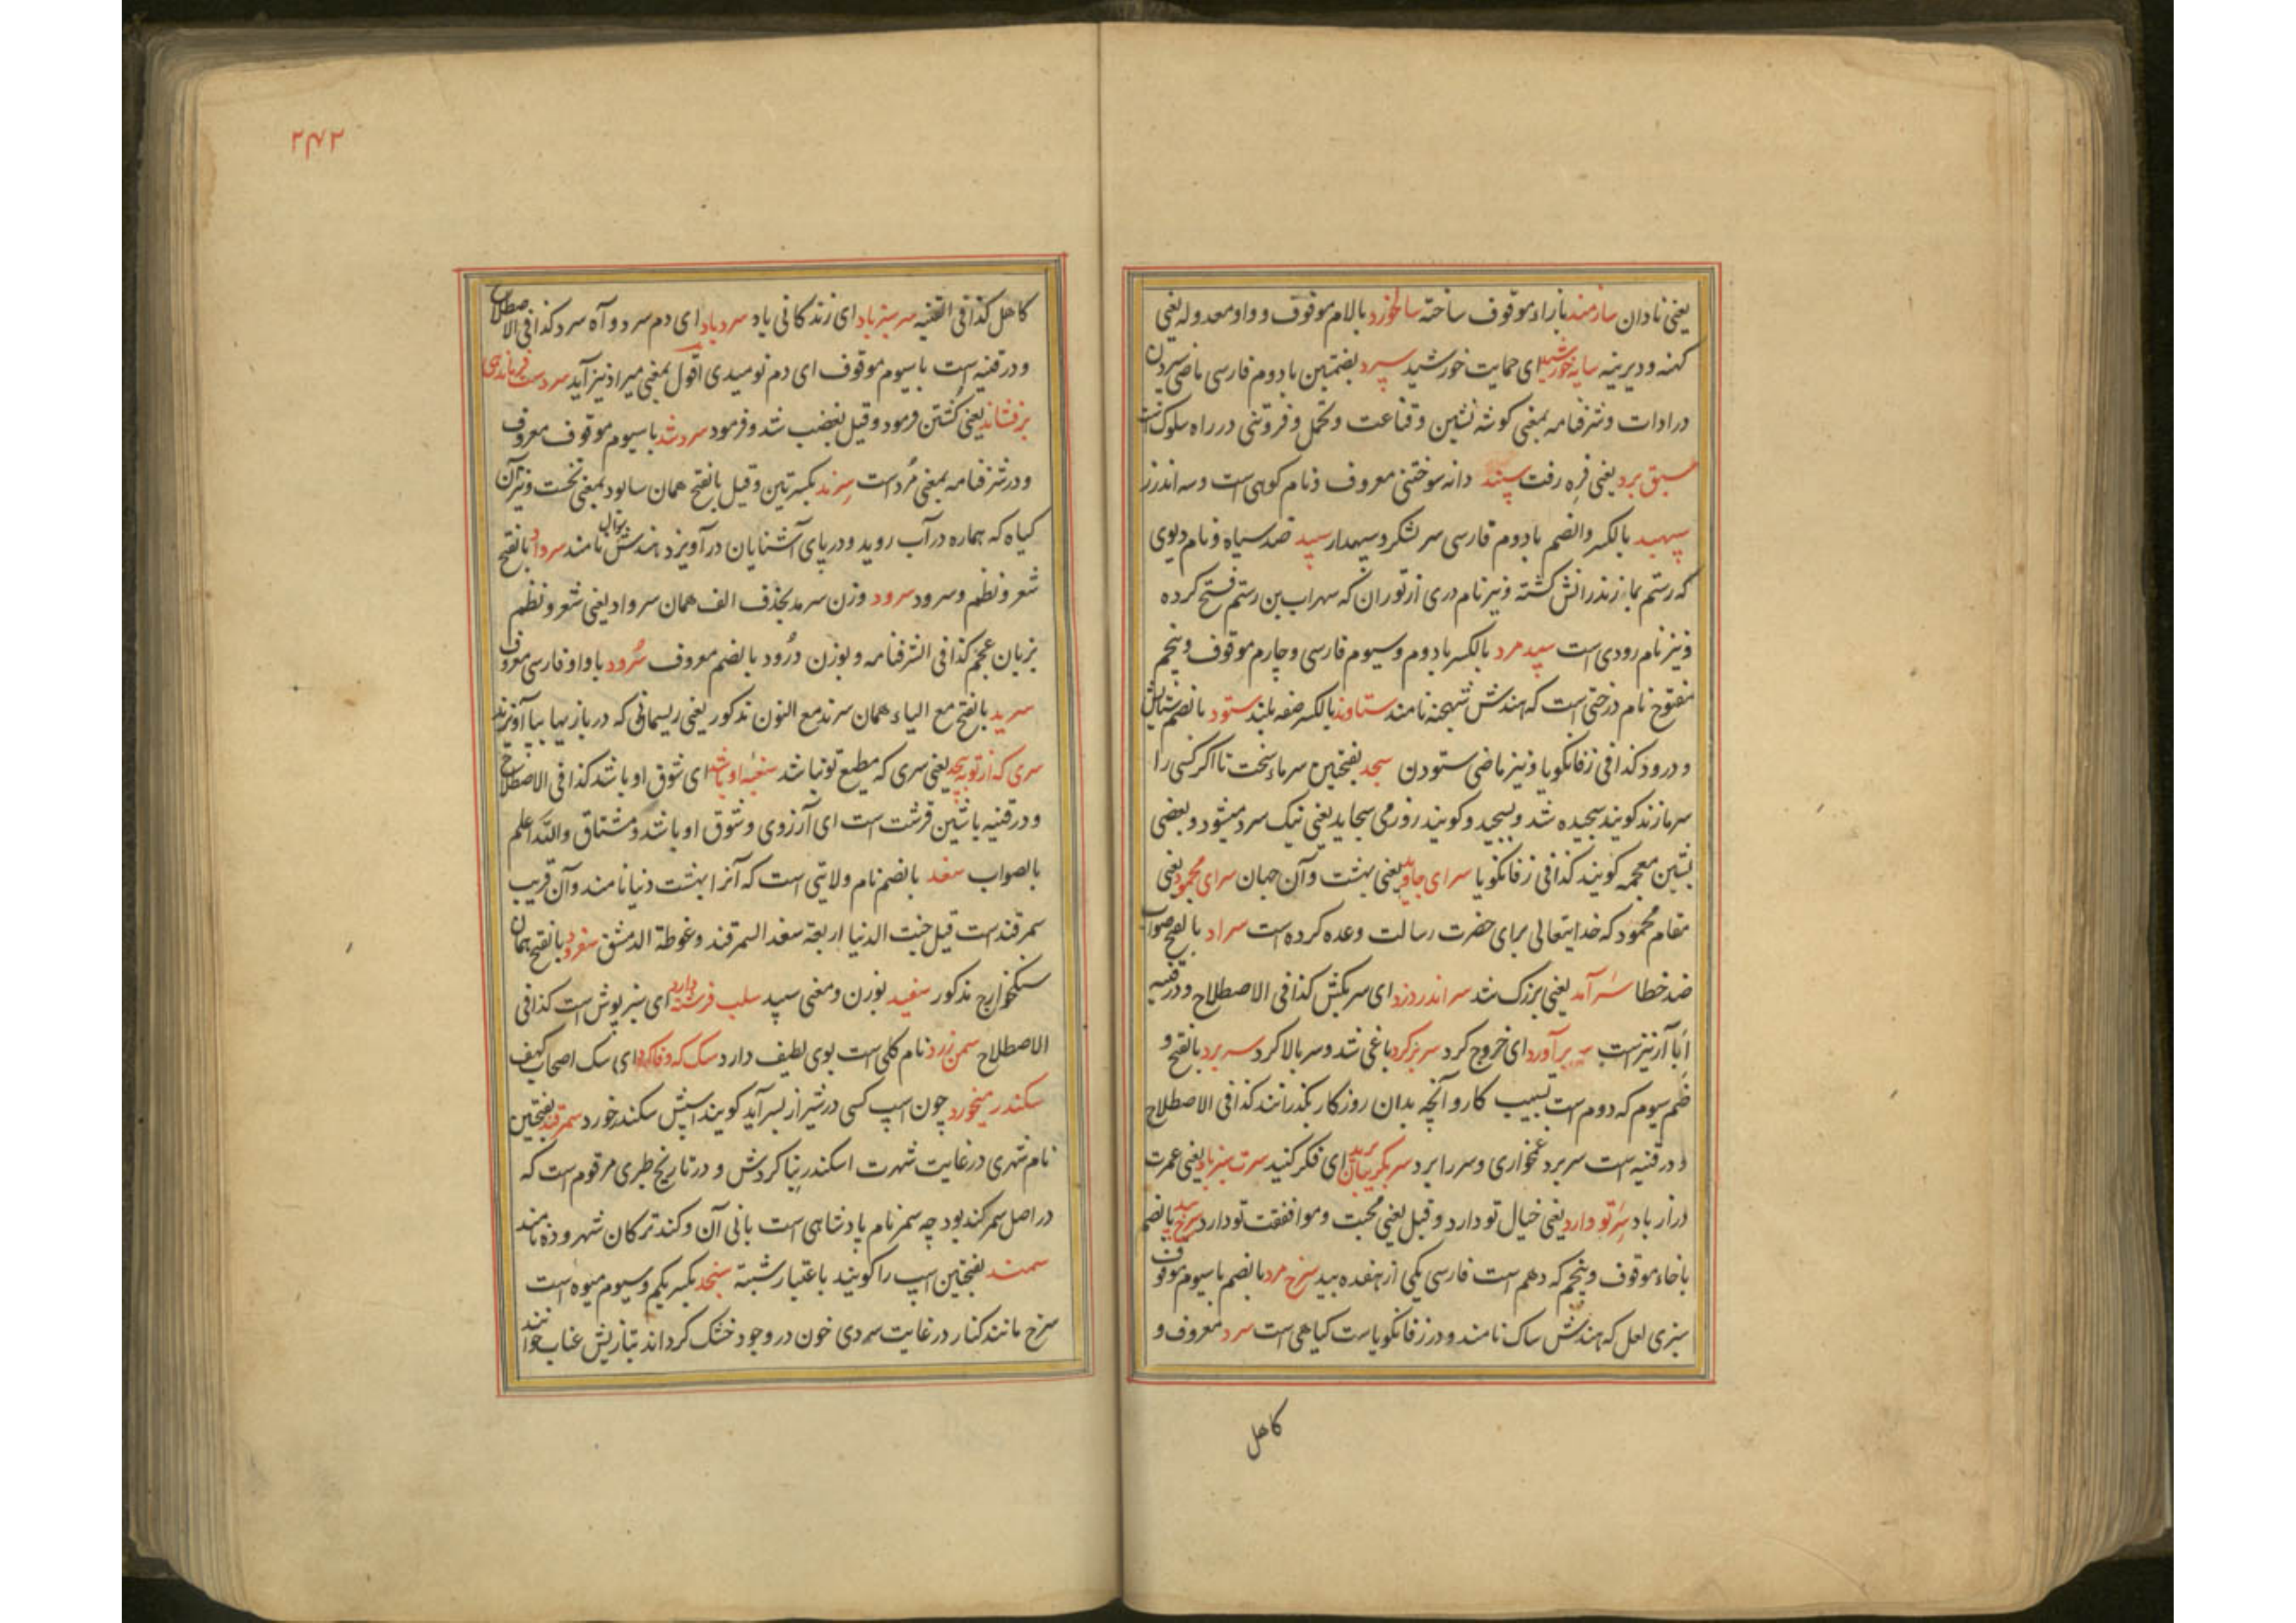 یعنی نادان سازمند بازاء موقوف ساخته سالخورد بالام موقوف و واو معدوله یعنی
کهنه و دیرینه سایه خورشید ای حمایت خورشید سپرد بضمتین بادوم فارسی ماضی سپردن
در ادات و شرفنامه بمعنی کوشه نشین و قناعت و تحمل و فروتنی در راه سلوک است
سبق برد یعنی فره رفت سپند دانه سوختنی معروف و نام کوهی است و سه اندرز
سپهبد بالکسر والضم بادوم فارسی سر لشکر و سپهدار سپید ضد سیاه و نام دیوی
که رستم بمازندرانش کشته و نیز نام دری از توران که سهراب بن رستم فتح کرده
و نیز نام رودی است سپیدمرد بالکسر بادوم و سیوم فارسی و چارم موقوف و پنجم
مفتوح نام درختی است که هندش نامند ستاوند بالکسر صفه بلند ستود بالضم ستایش
و درود کذا فی زفانکویا و نیز ماضی ستودن سجد بفتحتین سرماء سخت تا اکر کسی را
سرما زند کویند سجیده شد و سجید و کویند روز می سجاید یعنی نیک سرد میشود و بعضی
بشین معجمه کویند کذا فی زفانکویا سرای جاوید یعنی بهشت و آن جهان سرای محمود یعنی
مقام محمود که خدایتعالی برای حضرت رسالت وعده کرده است سراد بالفتح صواب
ضد خطا سرآمد یعنی بزرک شد سر اندر دزد ای سر بکش کذا فی الاصطلاح و در قنیه
ابا آرنیز است سر برآورد ای خروج کرد سر بزکرد باغی شد و سر بالا کرد سربرد بالفتح و
ضم سیوم که دوم است بسبب کار و آنچه بدان روزکار بکذرانند کذا فی الاصطلاح
و در قنیه است سر برد غمخواری و سر را برد سر بکریبان برید ای فکر کنید سرت سبز باد یعنی عمرت
دراز باد سر تو دارد یعنی خیال تو دارد و قیل یعنی محبت و موافقت تو دارد سرخ بید بالضم
باخاء موقوف و پنجم که دهم است فارسی یکی از هفده بید سرخ مرد بالضم باسیوم موقوف
سبزی لعل که هندش ساک نامند و در زفانکویاست کیاهی است سرد معروف و
کاهل
۲۴۲
کاهل کذا فی القنیه سرسبز باد ای زندکانی باد سرد باد ای دم سرد و آه سرد کذا فی الاصطلاح
و در قنیه است باسیوم موقوف ای دم نومیدی اقول بمعنی میراد نیز آید سر دست فرماندهی
برفشاند یعنی کشتن فرمود و قیل بغضب شد و فرمود سرد شد باسیوم موقوف معروف
و در شرفنامه بمعنی مرد است سرند بکسرتین و قیل بالفتح همان سابود بمعنی نخست و نیز آن
کیاه که هماره در آب روید و در پای آشنایان درآویزد هندش سوال نامند سرواد بالفتح
شعر و نظم و سرود سرود وزن سرمد بحذف الف همان سرواد یعنی شعر و نظم
بزبان عجم کذا فی الشرفنامه و بوزن درود بالضم معروف سرود باواو فارسی معروف
سرید بالفتح مع الیاء همان سرند مع النون مذکور یعنی ریسمانی که در بازیها بپا آویزند
سری که از تو بپیچد یعنی سری که مطیع تو نباشد سغبه او باشد ای شوق او باشد کذا فی الاصطلاح
و در قنیه باشین قرشت است ای آرزوی و شوق او باشد و مشتاق والله اعلم
بالصواب سغد بالضم نام ولایتی است که آنرا بهشت دنیا نامند و آن قریب
سمرقند است قیل جنت الدنیا اربعة سغد السمرقند و غوطة الدمشق سغرود بالفتح همان
سنکخوارج مذکور سفید بوزن و معنی سپید سلب فرشته دارد ای سبزپوش است کذا فی
الاصطلاح سمن زرد نام کلی است بوی لطیف دارد سک که وفا کرد ای سک اصحاب کهف
سکندر میخورد چون اسپ کسی در شیراز بسر آید کویند اسپش سکندر خورد سمرقند بفتحتین
نام شهری در غایت شهرت اسکندر بنا کردش و در تاریخ طبری مرقوم است که
در اصل سمرکند بود چه سمر نام پادشاهی است بانی آن و کند ترکان شهر و ده نامند
سمند بفتحتین اسپ را کویند باعتبار شبة سنجد بکسر یکم و سیوم میوه است
سرخ مانند کنار در غایت سردی خون در وجود خشک کرداند بتازیش عناب خوانند